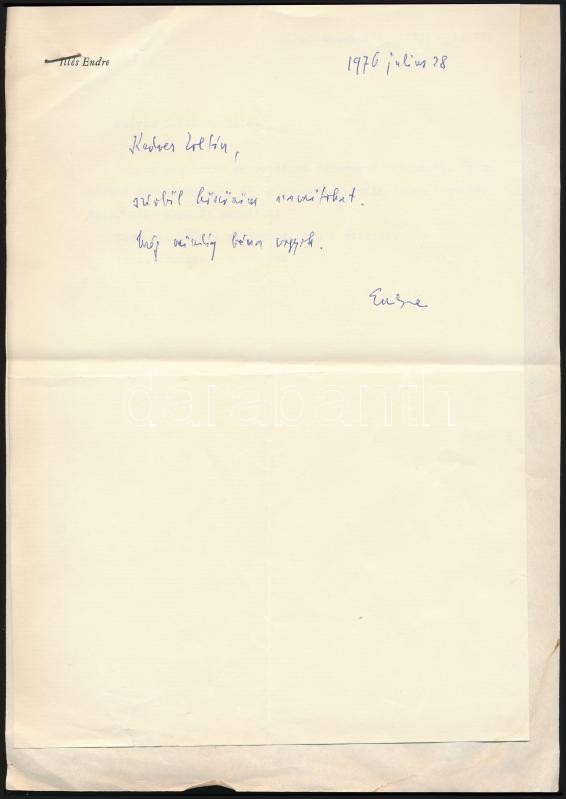 Illés Endre
1976 julius 28
Kedves Zoltán,
szívből köszönöm soraitokat.
Még mindig béna vagyok.
Endre
darabanth